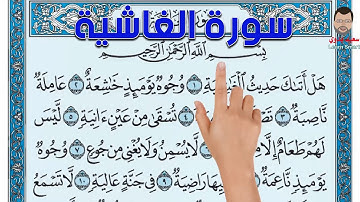 سورة الغاشية
بِسْمِ اللَّهِ الرَّحْمَٰنِ الرَّحِيمِ
هَلْ أَتَىٰكَ حَدِيثُ الْغَٰشِيَةِ ١ وُجُوهٌ يَوْمَئِذٍ خَٰشِعَةٌ ٢ عَامِلَةٌ
نَّاصِبَةٌ ٣ تُسْقَىٰ مِنْ عَيْنٍ ءَانِيَةٍ ٥ لَّيْسَ
لَهُمْ طَعَامٌ إِلَّا لَّا يُسْمِنُ وَلَا يُغْنِي مِن جُوعٍ ٧ وُجُوهٌ
يَوْمَئِذٍ نَّاعِمَةٌ ٨ رَاضِيَةٌ ٩ فِي جَنَّةٍ عَالِيَةٍ ١٠ لَّا تَسْمَعُ